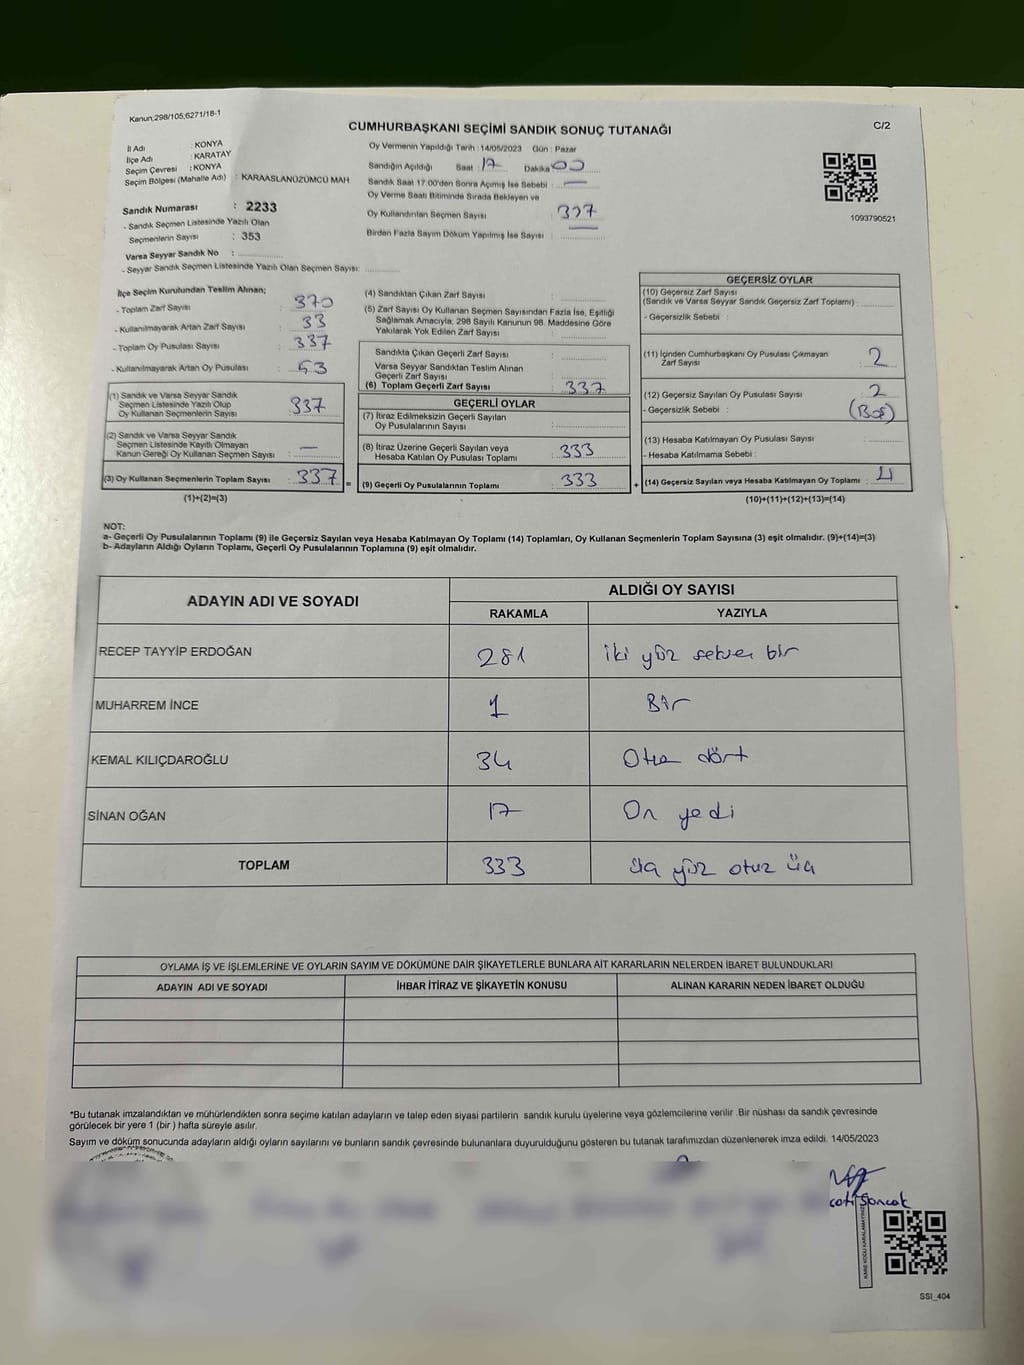 Kanun;298/105;6271/18-1
C/2
CUMHURBAŞKANI SEÇİMİ SANDIK SONUÇ TUTANAĞI
İl Adı : KONYA
İlçe Adı : KARATAY
Seçim Çevresi : KONYA
Seçim Bölgesi (Mahalle Adı) : KARAASLANÜZÜMCÜ MAH.
Sandık Numarası : 2233
- Sandık Seçmen Listesinde Yazılı Olan
Seçmenlerin Sayısı : 353
Varsa Seyyar Sandık No :
- Seyyar Sandık Seçmen Listesinde Yazılı Olan Seçmen Sayısı:
Oy Vermenin Yapıldığı Tarih : 14/05/2023 Gün : Pazar
Sandığın Açıldığı Saat : 17 Dakika : 00
Sandık Saat 17:00'den Sonra Açılmış İse Sebebi : —
Oy Verme Saati Bitiminde Sırada Bekleyen ve
Oy Kullandırılan Seçmen Sayısı : 337
Birden Fazla Sayım Döküm Yapılmış İse Sayısı :
1093790521
İlçe Seçim Kurulundan Teslim Alınan;
- Toplam Zarf Sayısı : 370
- Kullanılmayarak Artan Zarf Sayısı : 33
- Toplam Oy Pusulası Sayısı : 337
- Kullanılmayarak Artan Oy Pusulası : 53
(1) Sandık ve Varsa Seyyar Sandık
Seçmen Listesinde Yazılı Olup
Oy Kullanan Seçmenlerin Sayısı : 337
(2) Sandık ve Varsa Seyyar Sandık
Seçmen Listesinde Kayıtlı Olmayan
Kanun Gereği Oy Kullanan Seçmen Sayısı : —
(3) Oy Kullanan Seçmenlerin Toplam Sayısı : 337 =
(1)+(2)=(3)
(4) Sandıktan Çıkan Zarf Sayısı :
(5) Zarf Sayısı Oy Kullanan Seçmen Sayısından Fazla İse, Eşitliği
Sağlamak Amacıyla, 298 Sayılı Kanunun 98. Maddesine Göre
Yakılarak Yok Edilen Zarf Sayısı :
Sandıkta Çıkan Geçerli Zarf Sayısı :
Varsa Seyyar Sandıktan Teslim Alınan
Geçerli Zarf Sayısı :
(6) Toplam Geçerli Zarf Sayısı : 337
GEÇERLİ OYLAR
(7) İtiraz Edilmeksizin Geçerli Sayılan
Oy Pusulalarının Sayısı :
(8) İtiraz Üzerine Geçerli Sayılan veya
Hesaba Katılan Oy Pusulası Toplamı : 333
(9) Geçerli Oy Pusulalarının Toplamı : 333 +
GEÇERSİZ OYLAR
(10) Geçersiz Zarf Sayısı
(Sandık ve Varsa Seyyar Sandık Geçersiz Zarf Toplamı) :
- Geçersizlik Sebebi :
(11) İçinden Cumhurbaşkanı Oy Pusulası Çıkmayan
Zarf Sayısı : 2
(12) Geçersiz Sayılan Oy Pusulası Sayısı : 2
- Geçersizlik Sebebi : (Boş)
(13) Hesaba Katılmayan Oy Pusulası Sayısı :
- Hesaba Katılmama Sebebi :
(14) Geçersiz Sayılan veya Hesaba Katılmayan Oy Toplamı : 4
(10)+(11)+(12)+(13)=(14)
NOT:
a- Geçerli Oy Pusulalarının Toplamı (9) ile Geçersiz Sayılan veya Hesaba Katılmayan Oy Toplamı (14) Toplamları, Oy Kullanan Seçmenlerin Toplam Sayısına (3) eşit olmalıdır. (9)+(14)=(3)
b- Adayların Aldığı Oyların Toplamı, Geçerli Oy Pusulalarının Toplamına (9) eşit olmalıdır.
ADAYIN ADI VE SOYADI
ALDIĞI OY SAYISI
RAKAMLA YAZIYLA
RECEP TAYYİP ERDOĞAN 281 iki yüz seksen bir
MUHARREM İNCE 1 Bir
KEMAL KILIÇDAROĞLU 34 Otuz dört
SİNAN OĞAN 17 On yedi
TOPLAM 333 üç yüz otuz üç
OYLAMA İŞ VE İŞLEMLERİNE VE OYLARIN SAYIM VE DÖKÜMÜNE DAİR ŞİKAYETLERLE BUNLARA AİT KARARLARIN NELERDEN İBARET BULUNDUKLARI
ADAYIN ADI VE SOYADI İHBAR İTİRAZ VE ŞİKAYETİN KONUSU ALINAN KARARIN NEDEN İBARET OLDUĞU
*Bu tutanak imzalandıktan ve mühürlendikten sonra seçime katılan adayların ve talep eden siyasi partilerin sandık kurulu üyelerine veya gözlemcilerine verilir .Bir nüshası da sandık çevresinde
görülecek bir yere 1 (bir ) hafta süreyle asılır.
Sayım ve döküm sonucunda adayların aldığı oyların sayılarını ve bunların sandık çevresinde bulunanlara duyurulduğunu gösteren bu tutanak tarafımızdan düzenlenerek imza edildi. 14/05/2023
SSI_404